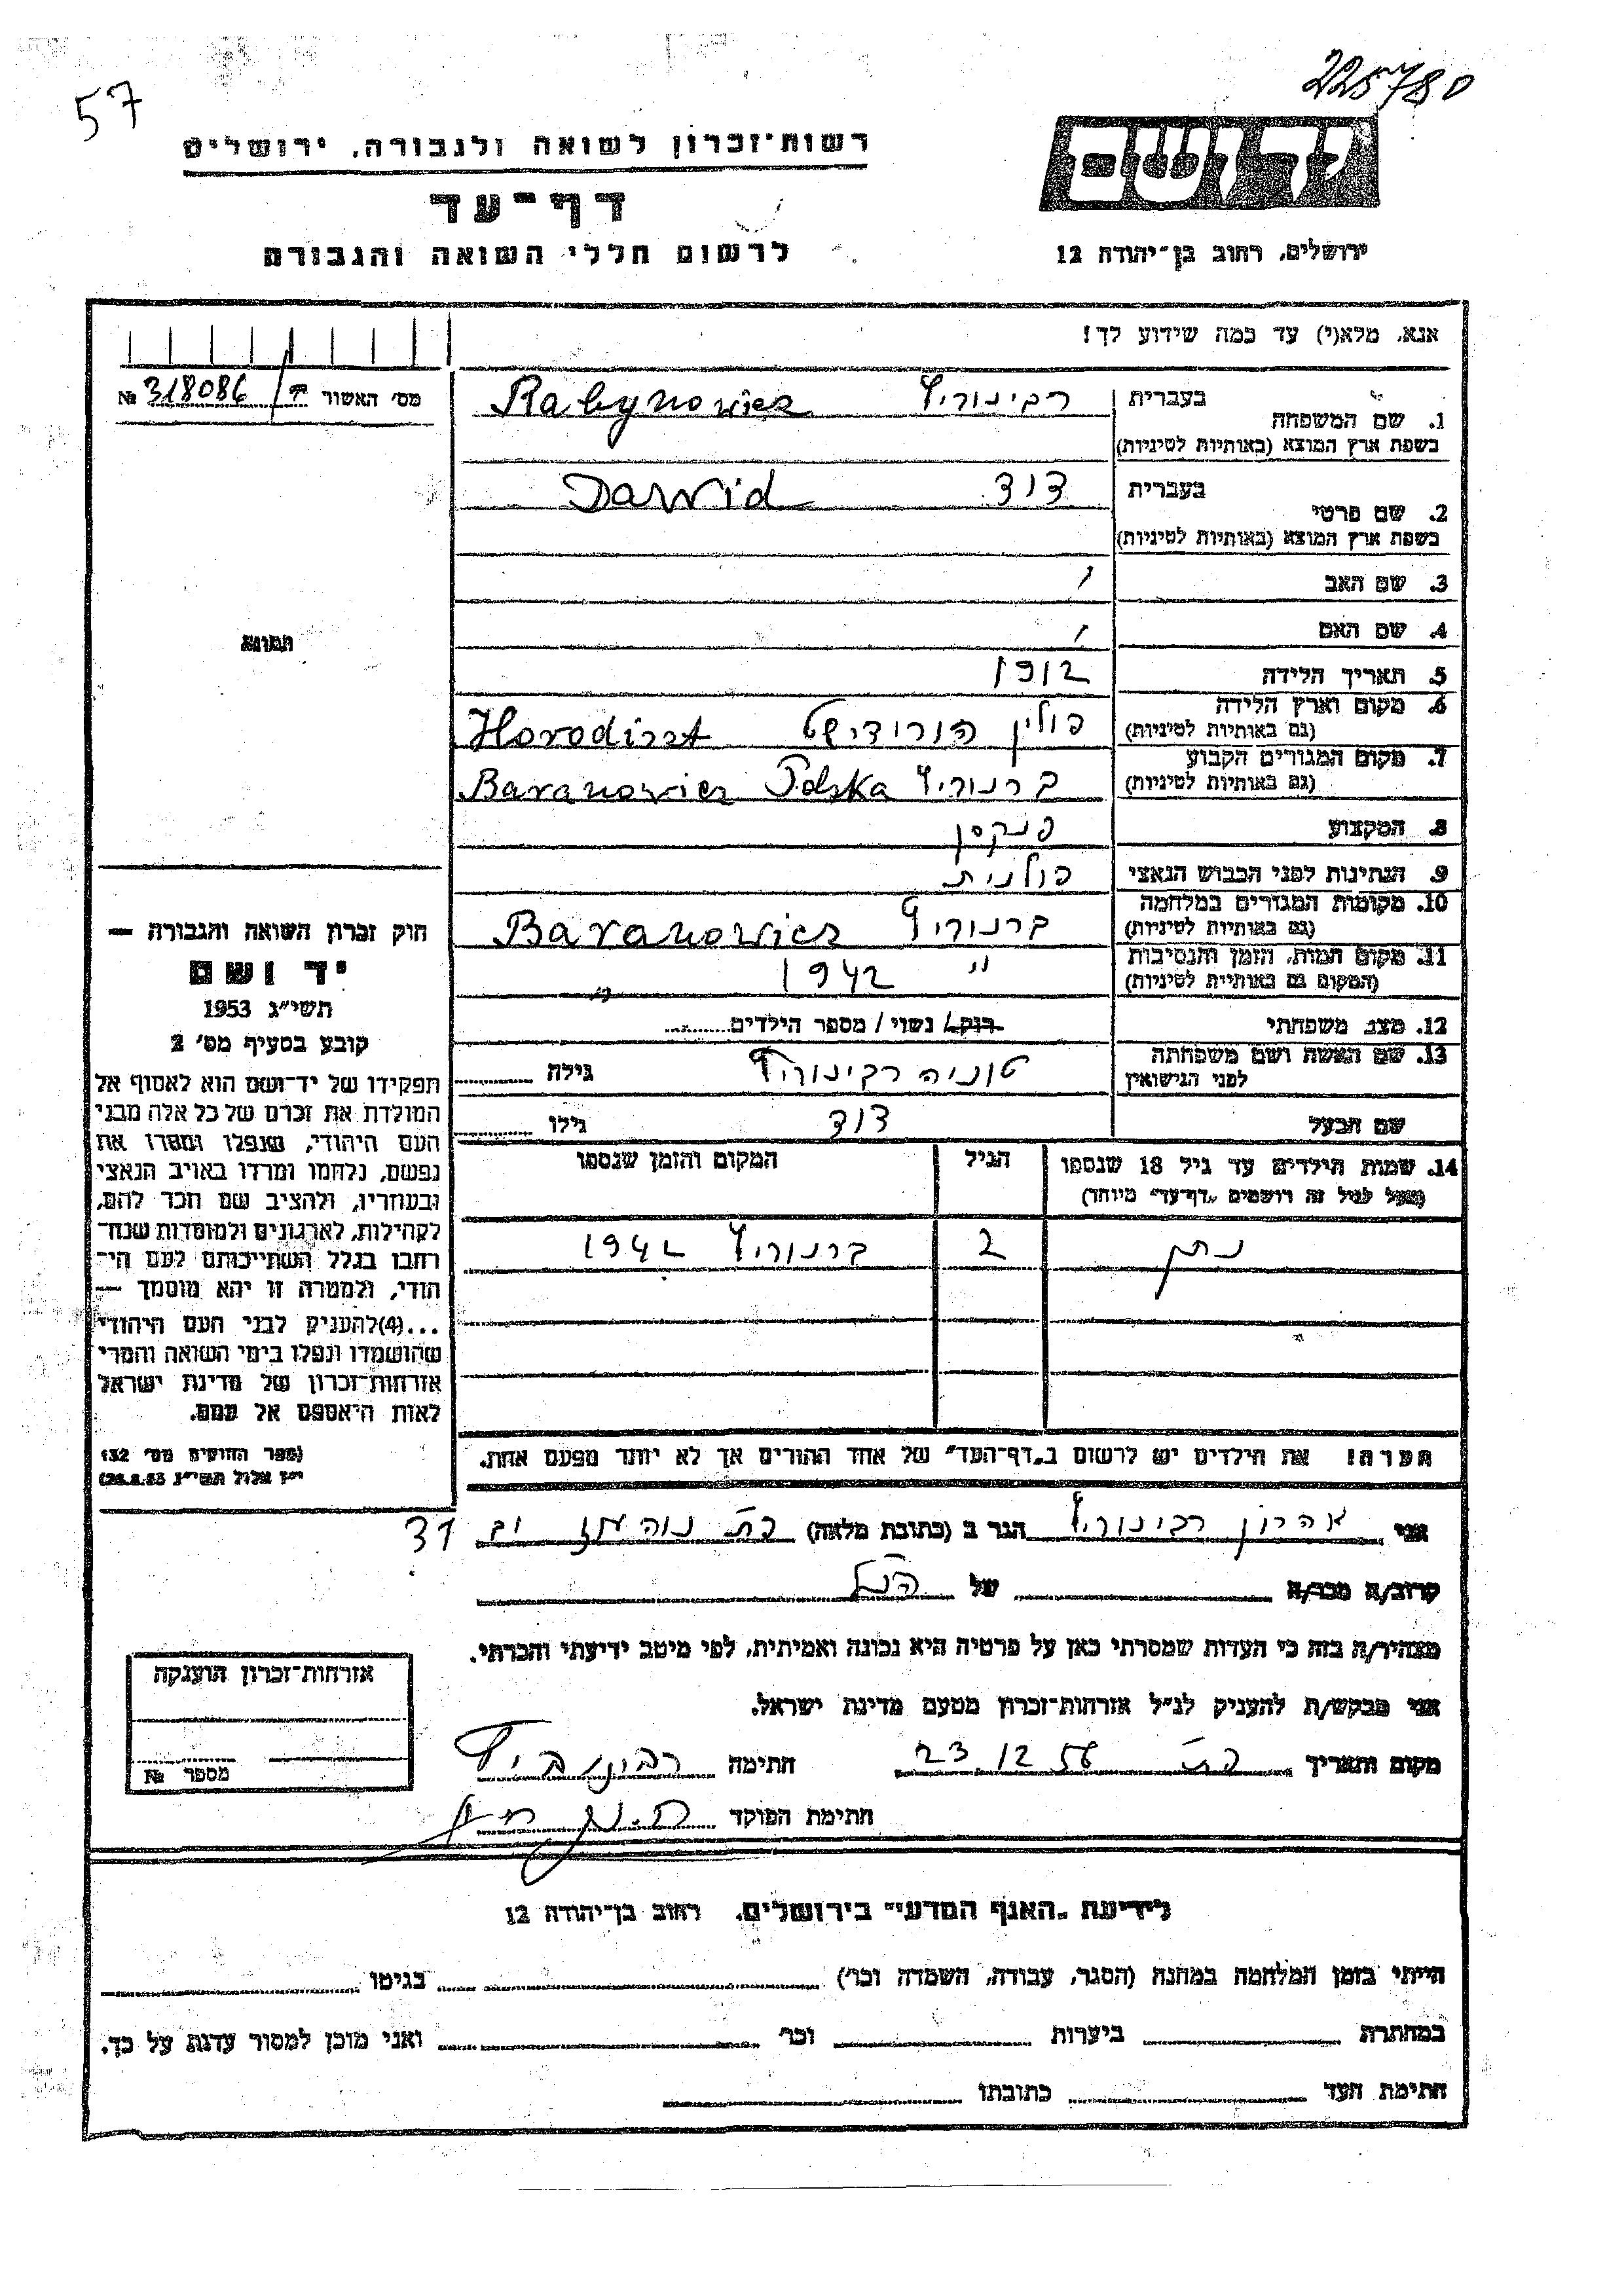 57
225780
רשות־זכרון לשואה ולגבורה, ירושלים
יד ושם
דף־עד
לרשום חללי השואה והגבורה
ירושלים, רחוב בן־יהודה 12
אנא, מלא(י) עד כמה שידוע לך!
מס׳ האשור № 318086
בעברית
1. שם המשפחה רבינוביץ Rabynowicz
בשפת ארץ המוצא (באותיות לטיניות)
בעברית
2. שם פרטי דוד Dawid
בשפת ארץ המוצא (באותיות לטיניות)
3. שם האב /
4. שם האם /
5. תאריך הלידה 1912
6. מקום וארץ הלידה פולין הורודישט Horodiszt
(גם באותיות לטיניות)
7. מקום המגורים הקבוע ברנוביץ Baranowicz Polska
(גם באותיות לטיניות)
8. המקצוע פנקסן
9. הנתינות לפני הכבוש הנאצי פולנית
10. מקומות המגורים במלחמה ברנוביץ Baranowicz
(גם באותיות לטיניות)
11. מקום המות, הזמן והנסיבות " 1942
(המקום גם באותיית לטיניות)
12. מצב משפחתי רוק/ נשוי / מספר הילדים
13. שם האשה ושם משפחתה טוניה רבינוביץ גילה
לפני הנישואין
שם הבעל דוד גילו
14. שמות הילדים עד גיל 18 שנספו הגיל המקום והזמן שנספו
(מעל לגיל זה רושמים „דף־עד" מיוחד)
נתן 2 ברנוביץ 1942
הערה! את הילדים יש לרשום ב„דף־העד" של אחד ההורים אך לא יותר מפעם אחת.
תמונה
חוק זכרון השואה והגבורה —
יד ושם
תשי״ג 1953
קובע בסעיף מס׳ 2
תפקידו של יד־ושם הוא לאסוף אל
המולדת את זכרם של כל אלה מבני
העם היהודי, שנפלו ומסרו את
נפשם, נלחמו ומרדו באויב הנאצי
ובעוזריו, ולהציב שם וזכר להם,
לקהילות, לארגונים ולמוסדות שנח־
רבו בגלל השתייכותם לעם הי־
הודי, ולמטרה זו יהא מוסמך —
...(4) להעניק לבני העם היהודי
שהושמדו ונפלו בימי השואה והמרי
אזרחות־זכרון של מדינת ישראל
לאות היאספם אל עמם.
(ספר החוקים מס׳ 132
י״ז אלול תשי״ג 28.8.53)
אני אהרון רבינוביץ הגר ב (כתובת מלאה) 31
קרוב/ה מכר/ה של הנ״ל
מצהיר/ה בזה כי העדות שמסרתי כאן על פרטיה היא נכונה ואמיתית, לפי מיטב ידיעתי והכרתי.
אני מבקש/ת להעניק לנ״ל אזרחות־זכרון מטעם מדינת ישראל.
מקום ותאריך 23.12.56 חתימה רבינוביץ
חתימת הפוקד
אזרחות־זכרון הוענקה
מספר №
לידיעת „האגף המדעי" בירושלים, רחוב בן־יהודה 12
הייתי בזמן המלחמה במחנה (הסגר, עבודה, השמדה וכו׳) בגיטו
במחתרת ביערות וכו׳ ואני מוכן למסור עדות על כך.
חתימת העד כתובתו